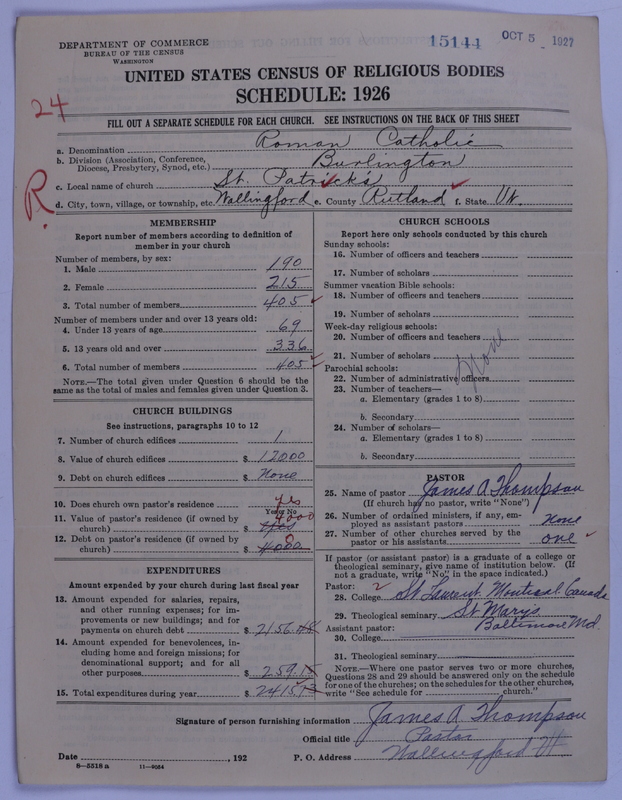 DEPARTMENT OF COMMERCE
BUREAU OF THE CENSUS
WASHINGTON
15144
OCT 5 1927
UNITED STATES CENSUS OF RELIGIOUS BODIES
SCHEDULE: 1926
24
FILL OUT A SEPARATE SCHEDULE FOR EACH CHURCH. SEE INSTRUCTIONS ON THE BACK OF THIS SHEET
a. Denomination Roman Catholic
b. Division (Association, Conference, Diocese, Presbytery, Synod, etc.) Burlington
c. Local name of church St. Patrick's
R.
d. City, town, village, or township, etc. Wallingford e. County Rutland f. State Vt.
MEMBERSHIP
Report number of members according to definition of
member in your church
Number of members, by sex:
1. Male 190
2. Female 215
3. Total number of members 405
Number of members under and over 13 years old:
4. Under 13 years of age 69
5. 13 years old and over 336
6. Total number of members 405
NOTE.—The total given under Question 6 should be the
same as the total of males and females given under Question 3.
CHURCH BUILDINGS
See instructions, paragraphs 10 to 12
7. Number of church edifices 1
8. Value of church edifices $ 12000
9. Debt on church edifices $ None
10. Does church own pastor's residence yes
Yes or No
11. Value of pastor's residence (if owned by
church) $ 4000
12. Debt on pastor's residence (if owned by
church) $ 4000 0
EXPENDITURES
Amount expended by your church during last fiscal year
13. Amount expended for salaries, repairs,
and other running expenses; for im-
provements or new buildings; and for
payments on church debt $ 2156
14. Amount expended for benevolences, in-
cluding home and foreign missions; for
denominational support; and for all
other purposes $ 259
15. Total expenditures during year $ 2415
CHURCH SCHOOLS
Report here only schools conducted by this church
Sunday schools:
16. Number of officers and teachers
17. Number of scholars
Summer vacation Bible schools:
18. Number of officers and teachers
19. Number of scholars
Week-day religious schools:
20. Number of officers and teachers
21. Number of scholars
None
Parochial schools:
22. Number of administrative officers
23. Number of teachers—
a. Elementary (grades 1 to 8)
b. Secondary
24. Number of scholars—
a. Elementary (grades 1 to 8)
b. Secondary
PASTOR
25. Name of pastor James A Thompson
(If church has no pastor, write "None")
26. Number of ordained ministers, if any, em-
ployed as assistant pastors none
27. Number of other churches served by the
pastor or his assistants one
If pastor (or assistant pastor) is a graduate of a college or
theological seminary, give name of institution below. (If
not a graduate, write "No" in the space indicated.)
Pastor:
28. College St Laurent Montreal Canada
29. Theological seminary St Mary's
Baltimore Md
Assistant pastor:
30. College
31. Theological seminary
NOTE.—Where one pastor serves two or more churches,
Questions 28 and 29 should be answered only on the schedule
for one of the churches; on the schedules for the other churches,
write "See schedule for church."
Signature of person furnishing information James A. Thompson
Official title Pastor
Date , 192 P. O. Address Wallingford Vt
8—5518a 11—9054